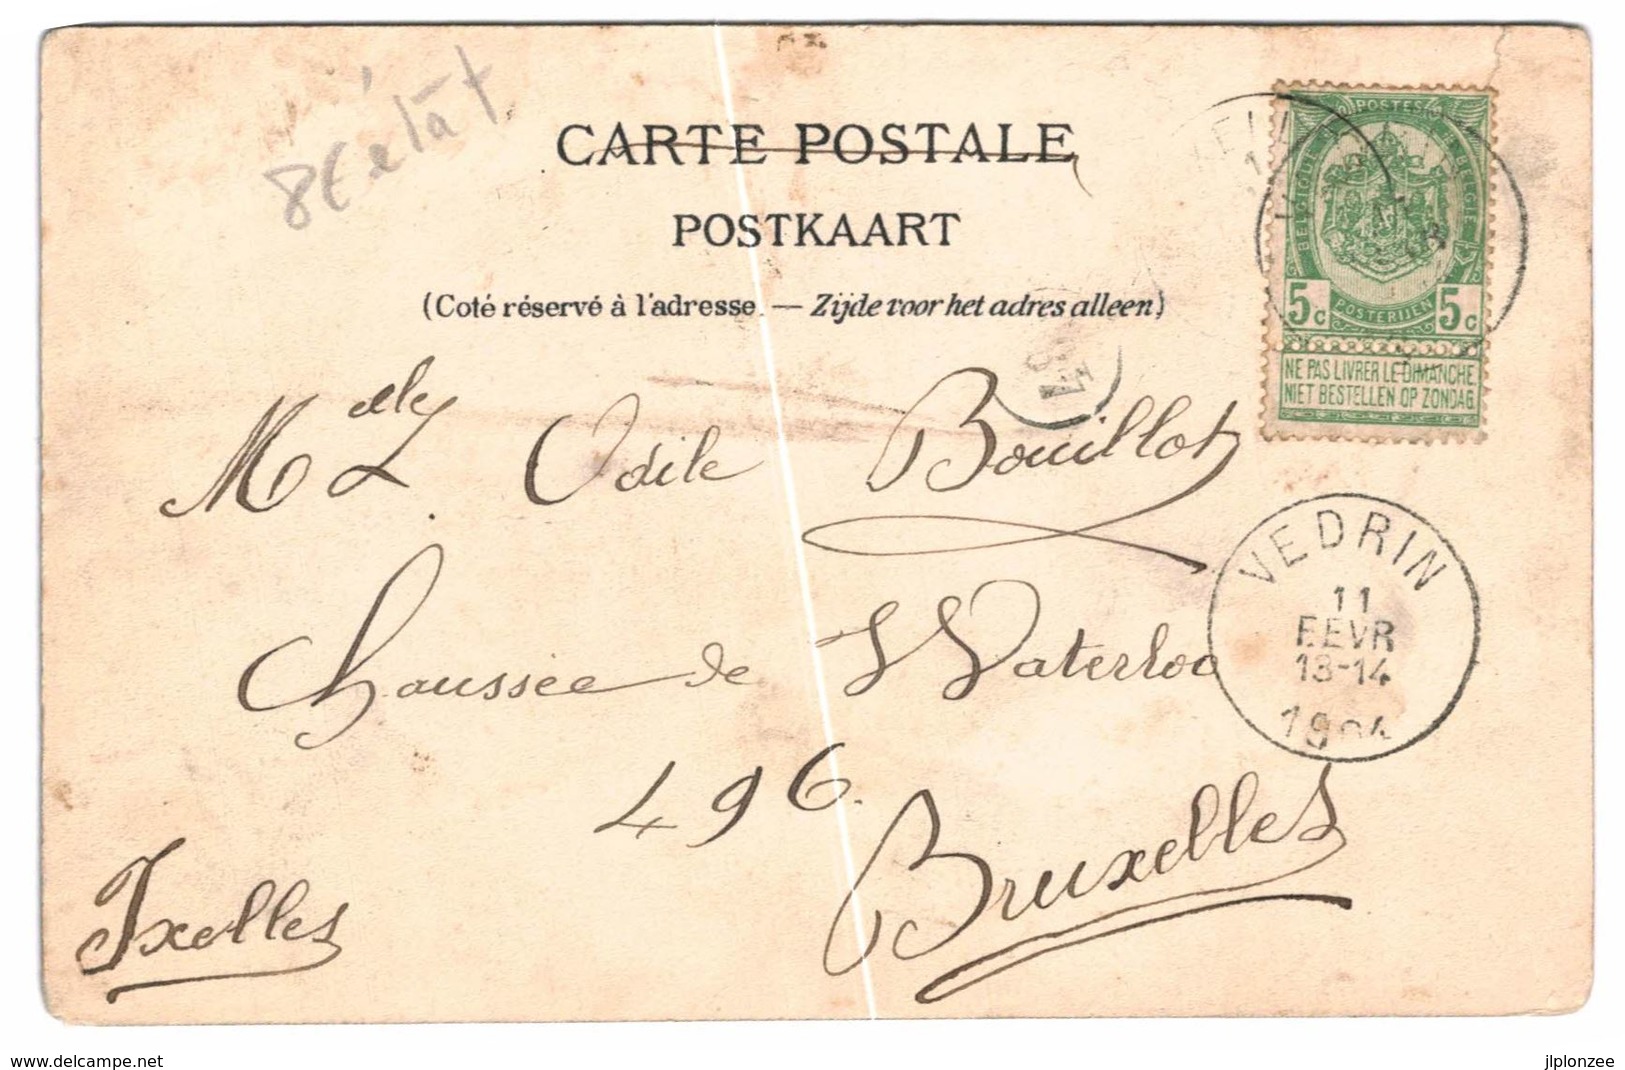 8€ étāt
CARTE POSTALE
POSTKAART
(Coté réservé à l'adresse. — Zijde voor het adres alleen)
POSTES
BELGIQUE
BELGIË
5c POSTERIJEN 5c
NE PAS LIVRER LE DIMANCHE
NIET BESTELLEN OP ZONDAG
Melle Odile Bouillot
Chaussée de Waterloo
496.
Ixelles Bruxelles
VEDRIN
11
FEVR
13-14
1904
www.delcampe.net
jlplonzee